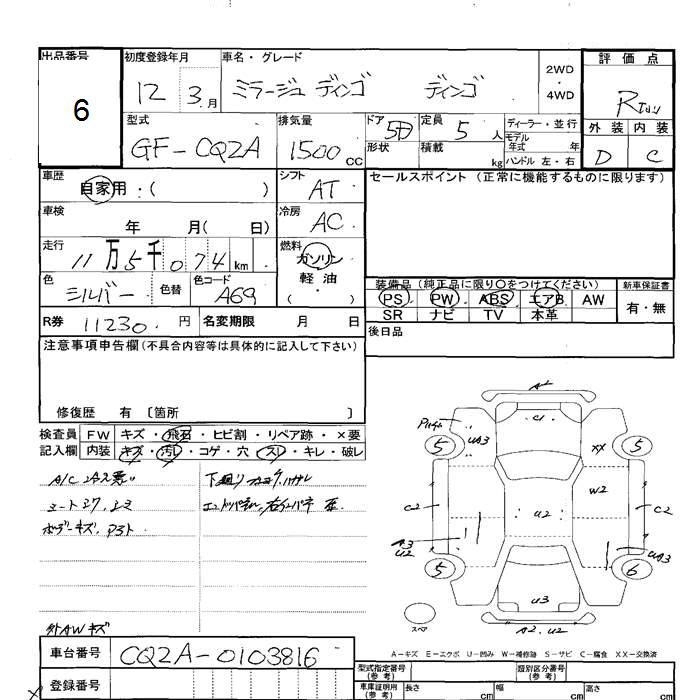 出品番号 初度登録年月 車名・グレード 2WD・4WD 評価点
6 12 3月 ミラージュ ディンゴ ディンゴ R
型式 排気量 ドア形状 定員積載 ディーラー・並行 外装 内装
GF-CQ2A 1500CC 5D 5人 kg モデル年式 年 ハンドル 左・右 D C
車歴 シフト セールスポイント (正常に機能するものに限ります)
自家用:( ) AT
車検 冷房
年 月( 日) AC
走行 燃料
11万5千074km ガソリン
軽・油
( )
色 色替 色コード 装備品 (純正品に限り○をつけてください) 新車保証書
シルバー A69 PS PW ABS エアB AW 有・無
SR ナビ TV 本革
R券 11230円 名変期限 月 日 後日品
注意事項申告欄(不具合内容等は具体的に記入して下さい)
修復歴 有 〔箇所 〕
検査員 FW キズ・飛石・ヒビ割・リペア跡・×要
記入欄 内装 キズ・汚レ・コゲ・穴・スレ・キレ・破レ
A/C
下廻り
A1
C1
UA3
5 5
XX
W2
C2 U2 C2
A3
U2
UA3
5 6
U3
スペア A2.U2
外AWキズ
A-キズ E-エクボ U-凹み W-補修跡 S-サビ C-腐食 XX-交換済
車台番号 CQ2A-0103816
型式指定番号(参考) 類別区分番号(参考)
登録番号 車庫証明用(参考) 長さ cm 幅 cm 高さ cm